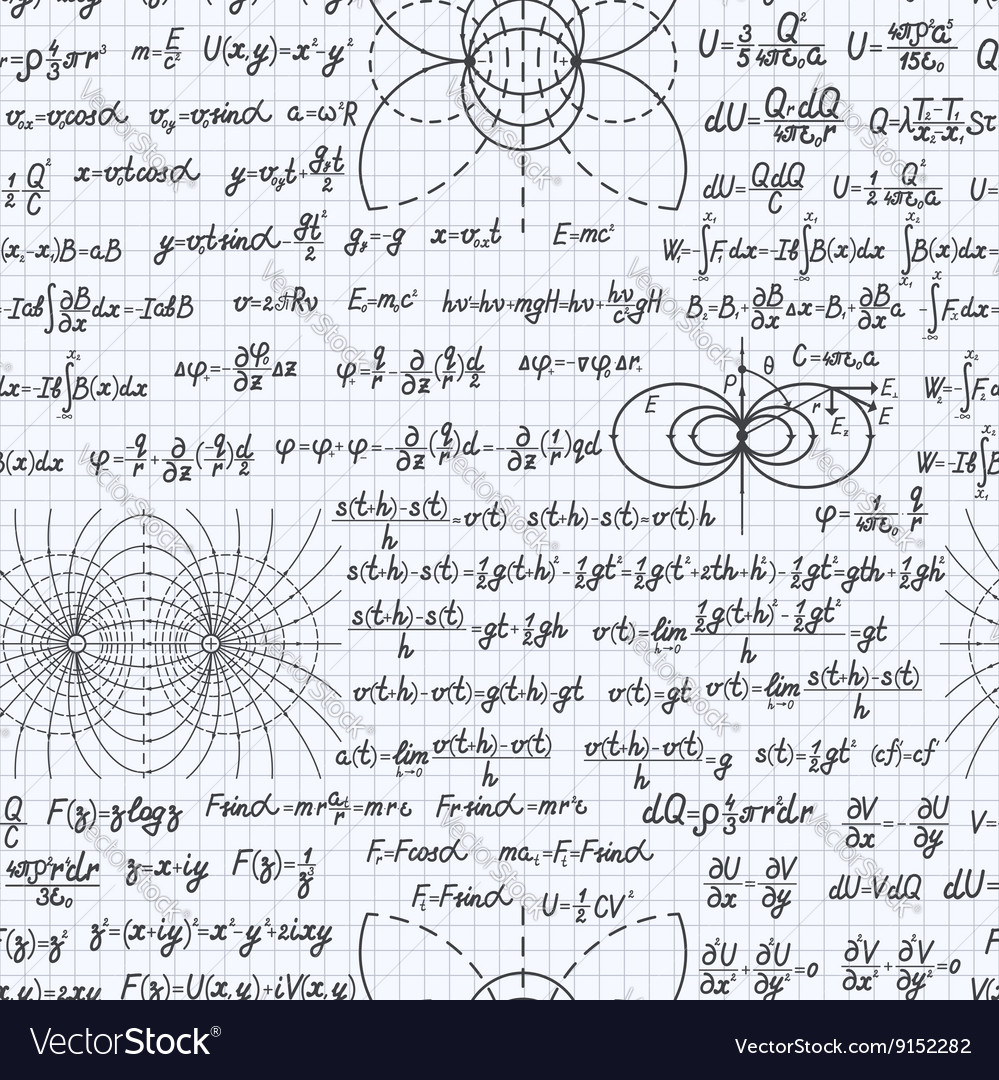 r=ρ4/3πr³ m=E/c² U(x,y)=x²-y² U=3/5 Q²/4πε₀a U=4πρ²a⁵/15ε₀ Q
v₀ₓ=v₀cosα v₀y=v₀sinα a=ω²R dU=QrdQ/4πε₀r Q=λT₂-T₁/x₂-x₁Sτ
1/2 Q²/C x=v₀tcosα y=v₀yt+gyt/2 dU=QdQ/C U=1/2 Q²/4πε₀a U=
(x₂-x₁)B=aB y=v₀tsinα-gt²/2 gy=-g x=v₀ₓt E=mc² W₁=-∫F₁dx=-Ib∫B(x)dx ∫B(x)dx=
-Iab∫∂B/∂x dx=-IabB v=2πRν E₀=m₀c² hν'=hν+mgH=hν+hν/c² gH B₂=B₁+∂B/∂x Δx=B₁+∂B/∂x a -∫Fₓdx=
dx=-Ib∫B(x)dx Δφ₊=-∂φ₀/∂z Δz φ₊=q/r-∂/∂z(q/r)d/2 Δφ₊=-∇φ₀Δr₊ C=4πε₀a W₂=-∫F₂d
P θ E r E⊥ E Ez
B(x)dx φ₋=-q/r+∂/∂z(-q/r)d/2 φ=φ₊+φ₋=-∂/∂z(q/r)d=-∂/∂z(1/r)qd W=-Ib∫B
s(t+h)-s(t)/h≈v(t) s(t+h)-s(t)≈v(t)·h φ=1/4πε₀·q/r
s(t+h)-s(t)=1/2g(t+h)²-1/2gt²=1/2g(t²+2th+h²)-1/2gt²=gth+1/2gh²
s(t+h)-s(t)/h=gt+1/2gh v(t)=lim h→0 1/2g(t+h)²-1/2gt²/h=gt
v(t+h)-v(t)=g(t+h)-gt v(t)=gt v(t)=lim h→0 s(t+h)-s(t)/h
a(t)=lim h→0 v(t+h)-v(t)/h v(t+h)-v(t)/h=g s(t)=1/2gt² (cf)'=cf'
Q/C F(z)=zlogz Fsinα=mr aₜ/r=mrε Frsinα=mr²ε dQ=ρ4/3πr²dr ∂V/∂x=-∂U/∂y V=
4πρ²r⁴dr/3ε₀ z=x+iy F(z)=1/z³ Fᵣ=Fcosα maₜ=Fₜ=Fsinα ∂U/∂x=∂V/∂y dU=VdQ dU=
Fₜ=Fsinα U=1/2CV²
F(z)=z² z²=(x+iy)²=x²-y²+2ixy ∂²U/∂x²+∂²U/∂y²=0 ∂²V/∂x²+∂²V/∂y²=0
x,y)=2xy F(z)=U(x,y)+iV(x,y)
VectorStock® VectorStock.com/9152282